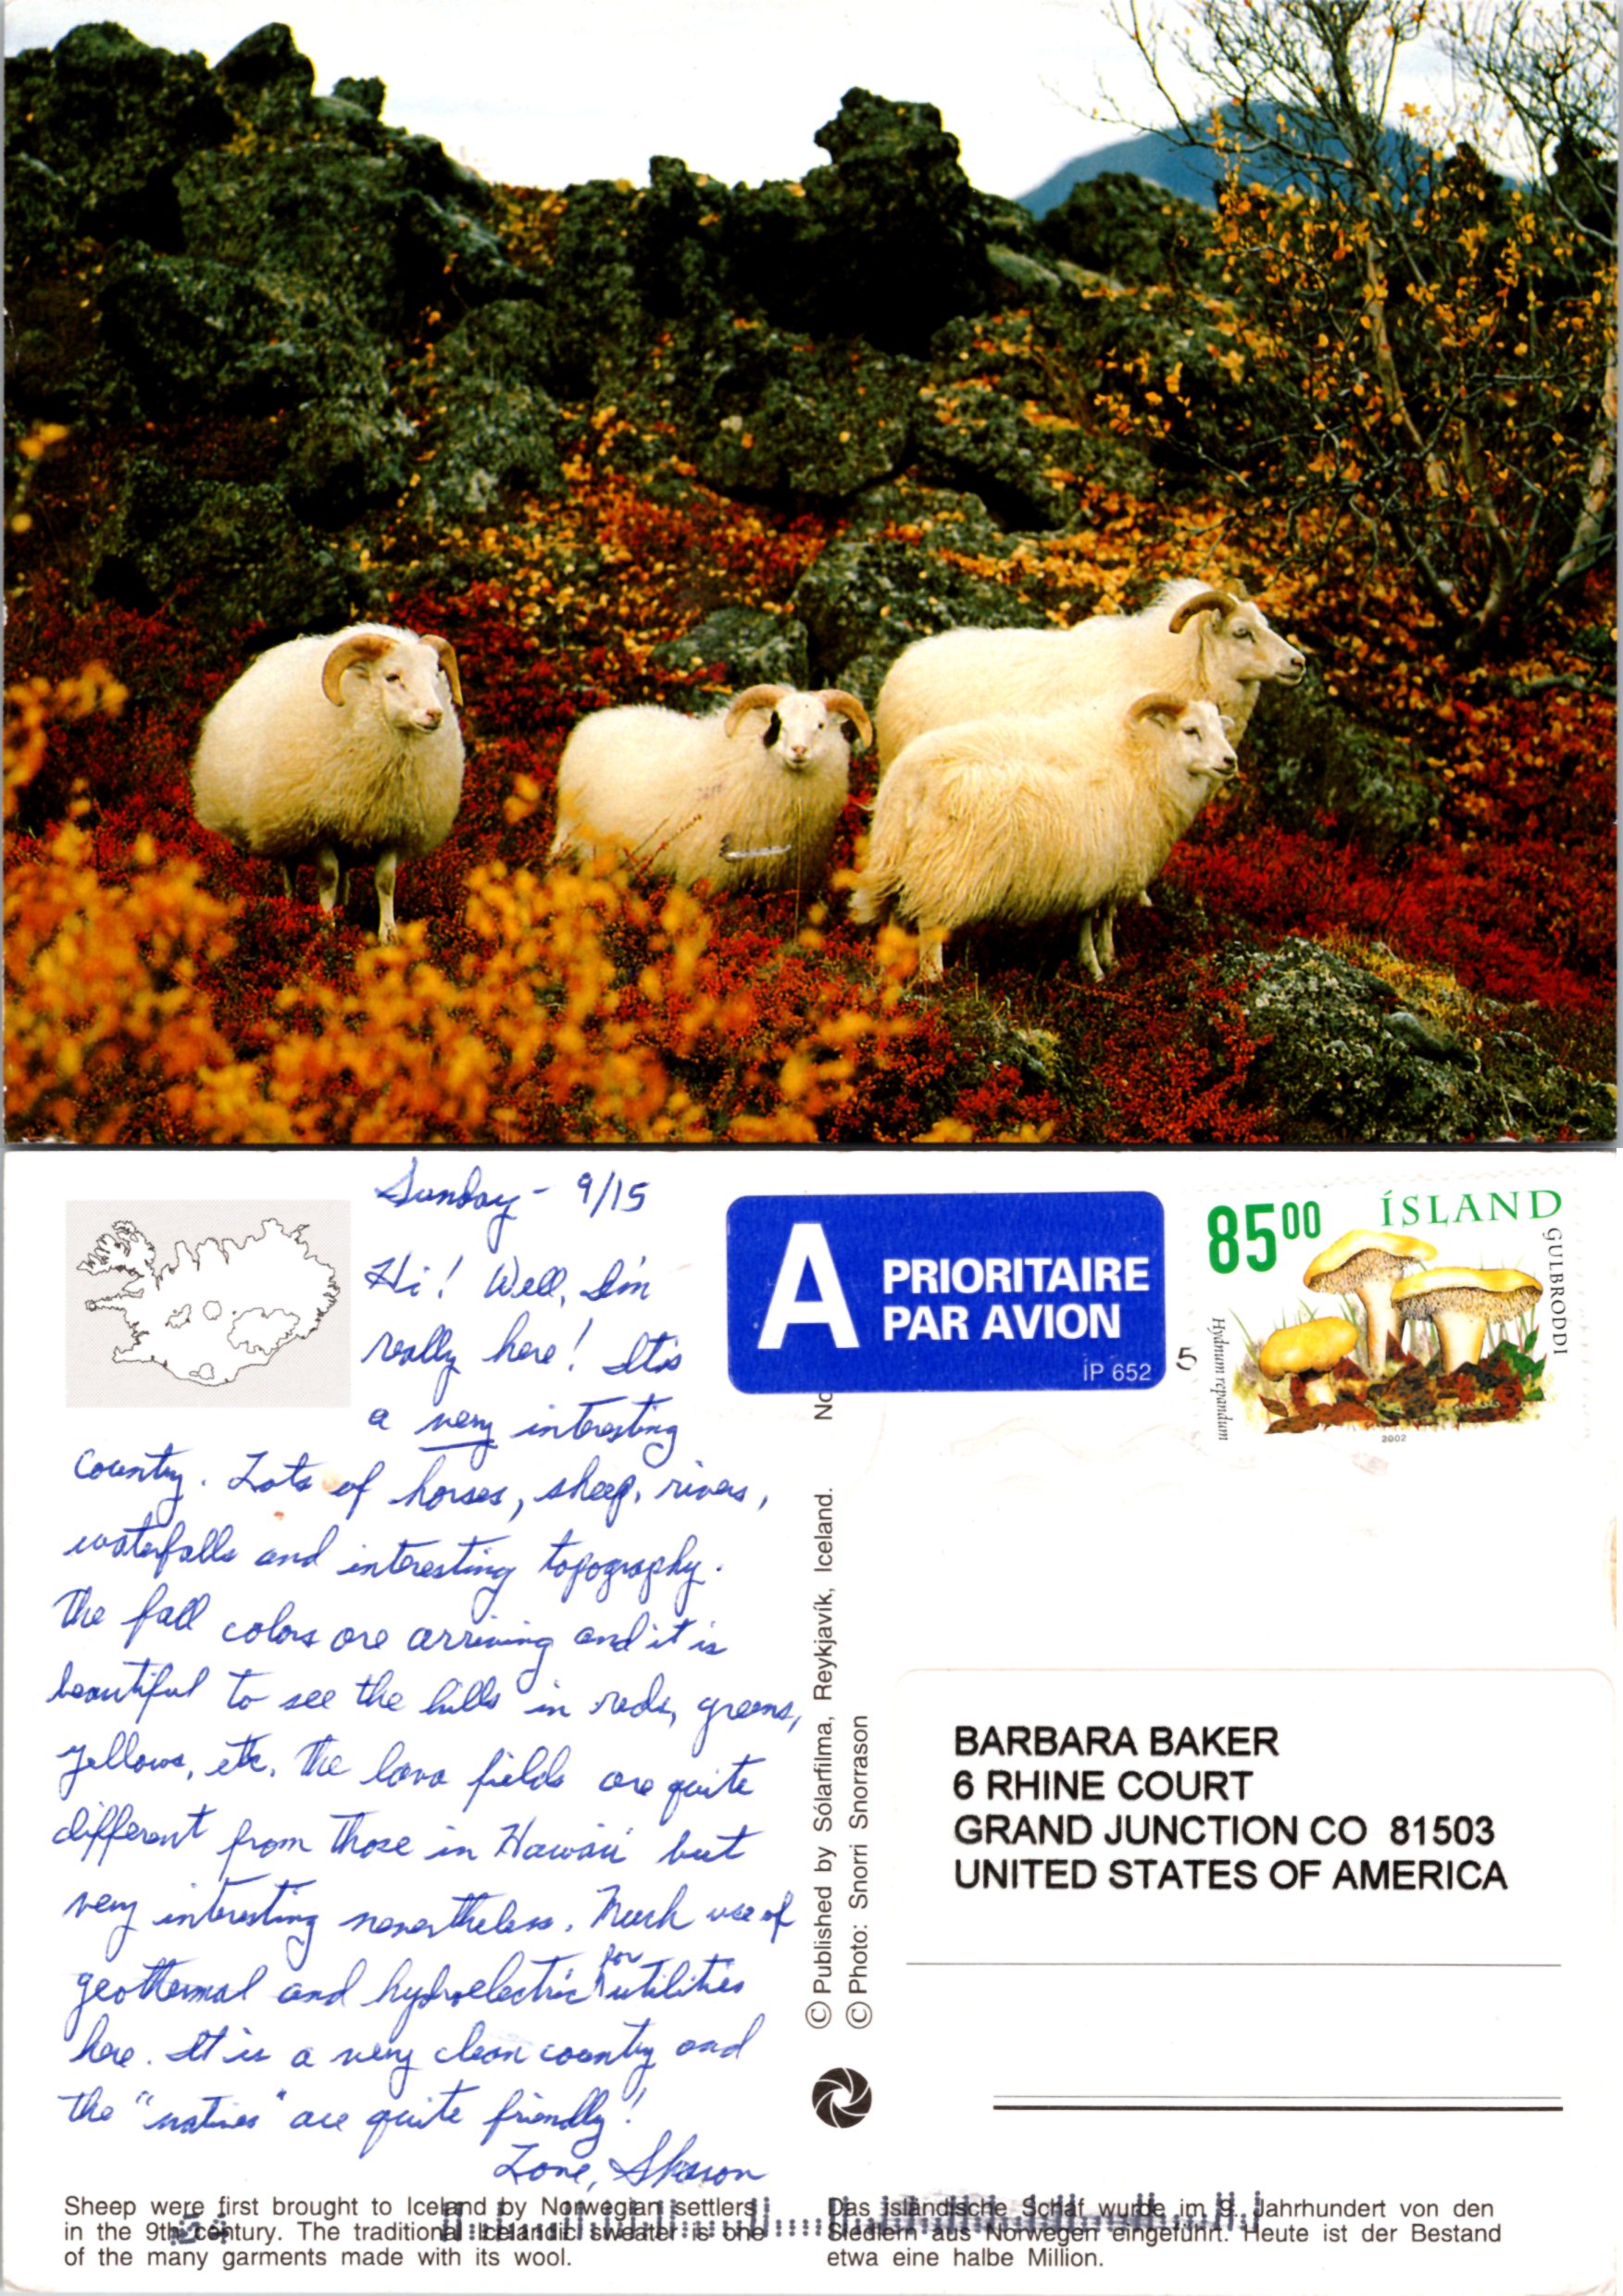 Sunday - 9/15
Hi! Well, I'm
really here! It's
a very interesting
country. Lots of horses, sheep, rivers,
waterfalls and interesting topography.
The fall colors are arriving and it is
beautiful to see the hills in reds, greens,
yellows, etc. The lava fields are quite
different from those in Hawaii but
very interesting nevertheless. Much use of
geothermal and hydroelectric for utilities
here. It is a very clean country and
the "natives" are quite friendly!
Love, Sharon
Sheep were first brought to Iceland by Norwegian settlers
in the 9th century. The traditional Icelandic sweater is one
of the many garments made with its wool.
No
© Published by Sólarfilma, Reykjavík, Iceland.
© Photo: Snorri Snorrason
A PRIORITAIRE
PAR AVION
ÍP 652
5
8500 ÍSLAND
GULBRODDI
Hydnum repandum
2002
BARBARA BAKER
6 RHINE COURT
GRAND JUNCTION CO 81503
UNITED STATES OF AMERICA
Das isländische Schaf wurde im 9. Jahrhundert von den
Siedlern aus Norwegen eingeführt. Heute ist der Bestand
etwa eine halbe Million.